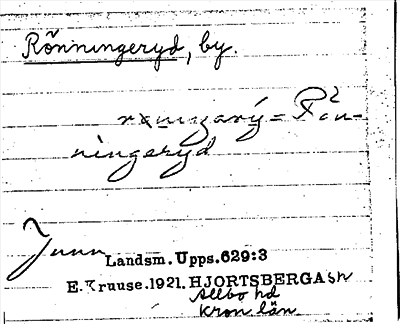 Rönningeryd, by.
= Rön-
ningeryd
Landsm. Upps. 629:3
E. Kruuse. 1921. HJORTSBERGA sn
Allbo hd
Kron. län.